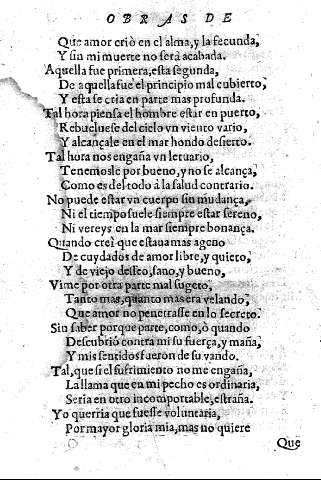 OBRAS DE
Que amor criò en el alma, y la fecunda,
Y sin mi muerte no serà acabada.
Aquella fue primera, esta segunda,
De aquella fue el principio mal cubierto,
Y esta se cria en parte mas profunda.
Tal hora piensa el hombre estar en puerto,
Rebueluese del cielo vn viento vario,
Y alcançale en el mar hondo desierto.
Tal hora nos engaña vn letuario,
Tenemosle por bueno, y no se alcança,
Como es del todo à la salud contrario.
No puede estar vn cuerpo sin mudança,
Ni el tiempo suele siempre estar sereno,
Ni vereys en la mar siempre bonança.
Quando creì que estaua mas ageno
De cuydados de amor libre, y quieto,
Y de viejo desseo, sano, y bueno,
Vime por otra parte mal sugeto,
Tanto mas, quanto mas era velando,
Que amor no penetrasse en lo secreto.
Sin saber porque parte, como, ò quando
Descubriò contra mi su fuerça, y maña,
Y mis sentidos fueron de su vando.
Tal, que si el sufrimiento no me engaña,
La llama que en mi pecho es ordinaria,
Seria en otro incomportable, estraña.
Yo querria que fuesse voluntaria,
Por mayor gloria mia, mas no quiere
Que